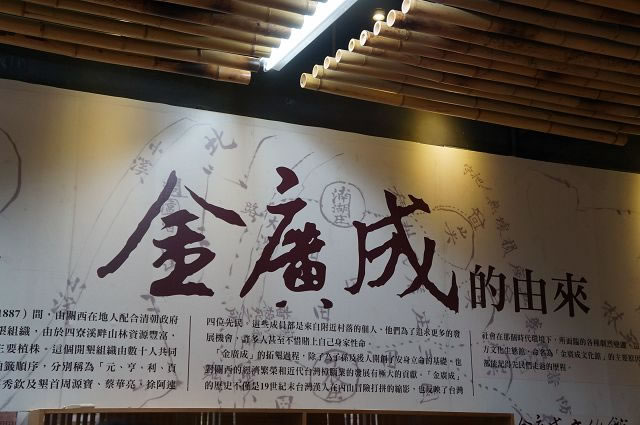 金廣成的由來
1887）間，由關西在地人配合清朝政府
墾組織，由於四寮溪畔山林資源豐富，
主要植株。這個開墾組織由數十人共同
由籤順序，分別稱為「元、亨、利、貞
秀欽及墾首周源寶、蔡華亮、徐阿連
四位先民，這些成員都是來自附近村落的個人，他們為了追求更多的發
展機會，許多人甚至不惜賭上自己身家性命。
「金廣成」的拓墾過程，除了為子孫及後人開創了安身立命的基礎，也
對關西的經濟繁榮和近代台灣樟腦業的發展有極大的貢獻。「金廣成」
的歷史不僅是19世紀末台灣漢人在內山冒險打拼的縮影，也反映了台灣
社會在那個時代環境下，所面臨的各種
方文化生態館，命名為「金廣成文化館」
都能記得先民們走過的歷程。